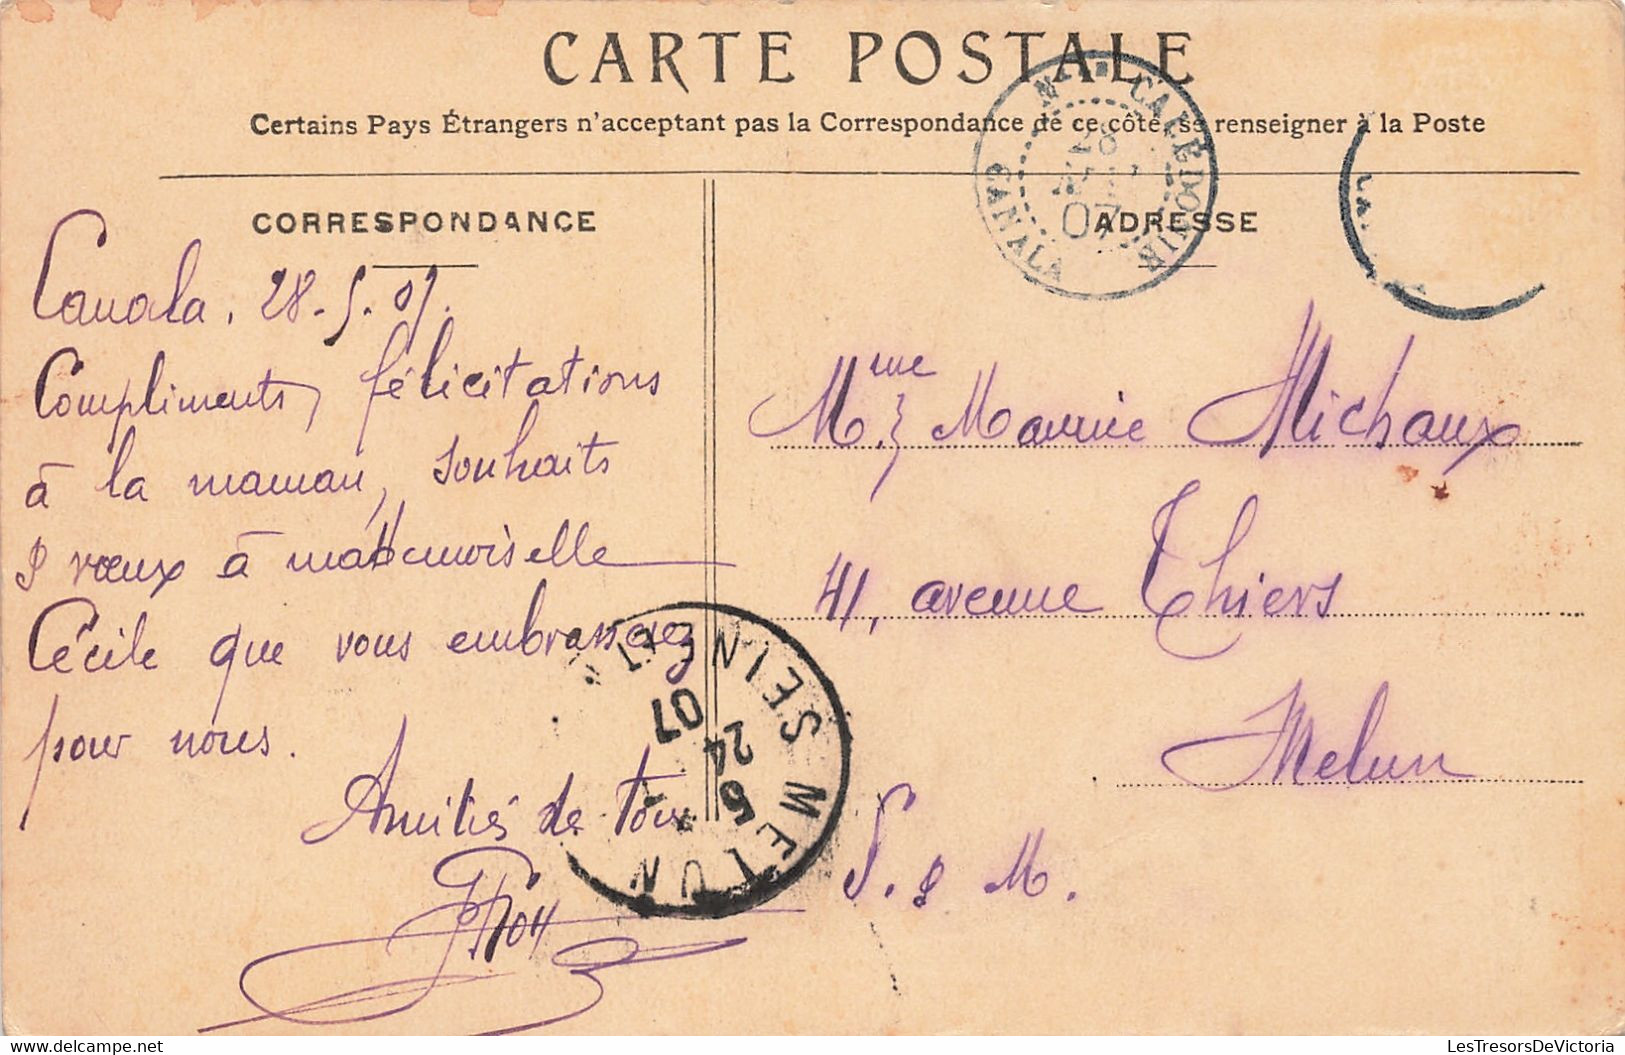 CARTE POSTALE
Certains Pays Étrangers n'acceptant pas la Correspondance de ce côté, se renseigner à la Poste
CORRESPONDANCE
Canala, 28-5-07.
Compliments, félicitations
à la maman, souhaits
& vœux à mademoiselle
Cécile que vous embrasserez
pour nous.
Amitiés de tous
ADRESSE
Mme & Maurice Michaux
41, avenue Thiers
Melun
S. & M.
Nlle CALEDONIE
CANALA
07
MELUN
SEINE ET M
24
07
delcampe.net
LesTresorsDeVictoria